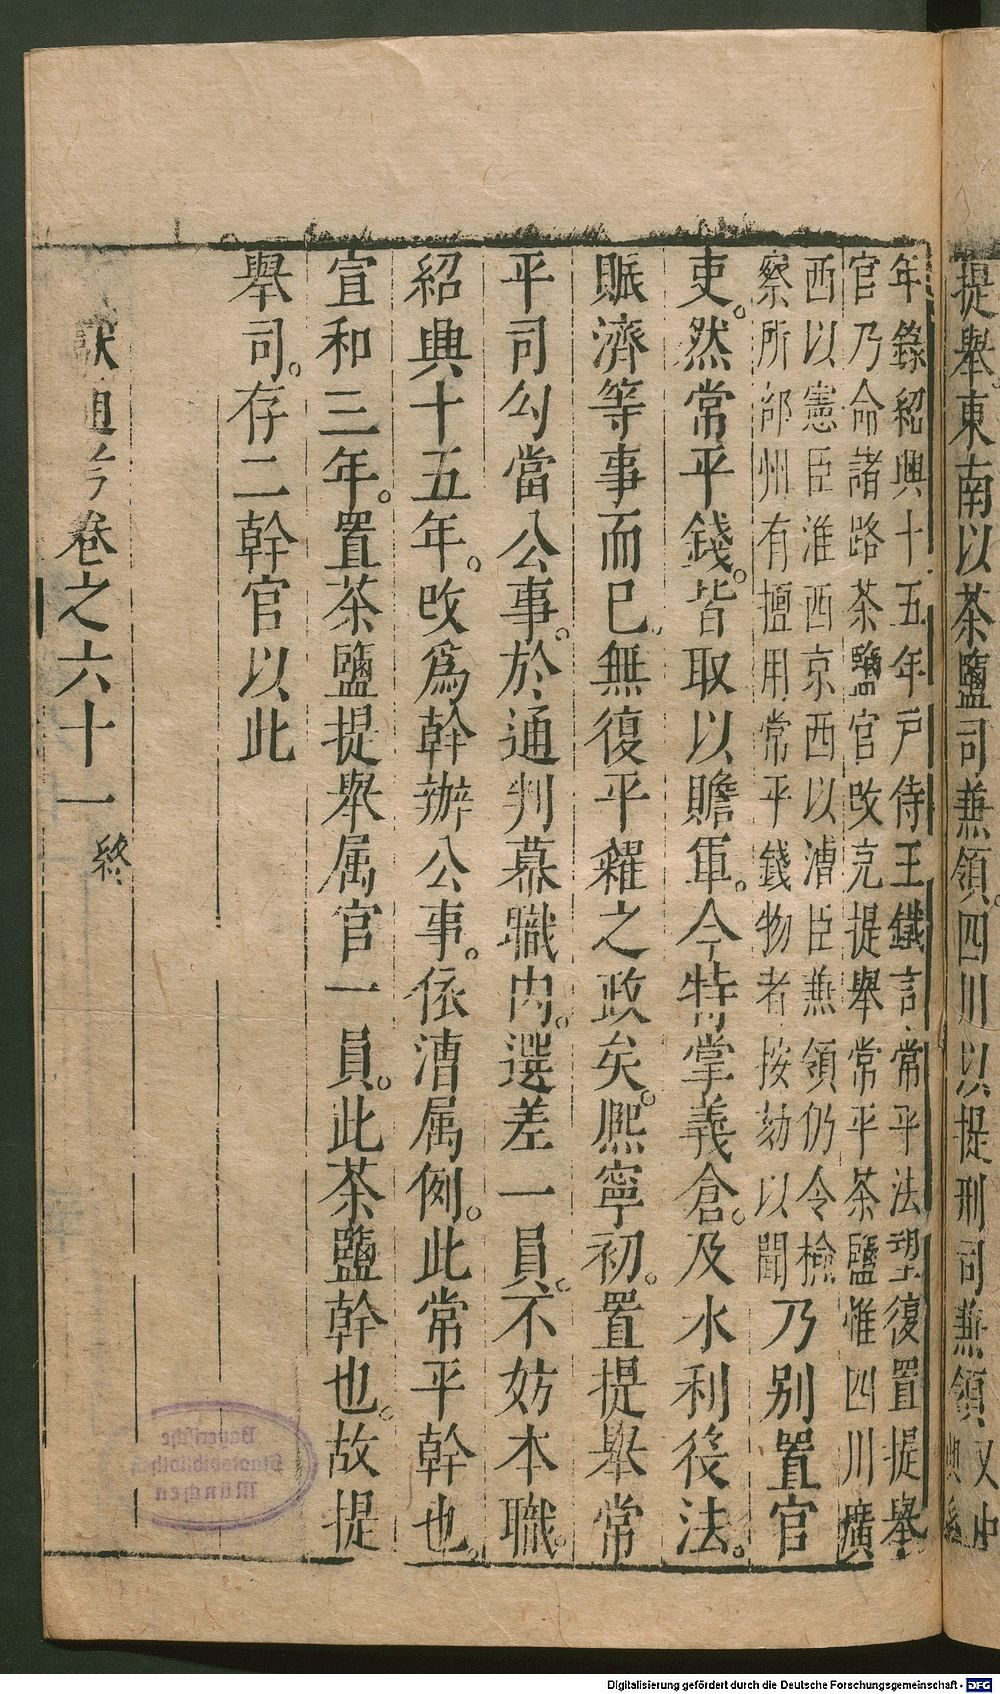 提舉東南以茶鹽司兼領四川以提刑司兼領又中
年錄紹興十五年戶侍王鐵言常平法望復置提舉
官乃命諸路茶鹽官改充提舉常平茶鹽惟四川廣
西以憲臣淮西京西以漕臣兼領仍令檢
察所部州有擅用常平錢物者按劾以聞乃別置官
吏。然常平錢。皆取以贍軍。今特掌義倉。及水利役法。
賑濟等事而已。無復平糴之政矣。熙寧初。置提舉常
平司勾當公事。於通判幕職內。選差一員。不妨本職。
紹興十五年。改爲幹辦公事。依漕属例。此常平幹也。
宣和三年。置茶鹽提舉属官一員。此茶鹽幹也。故提
舉司。存二幹官以此
獻通考卷之六十一終
Bayerische
Staatsbibliothek
München
Digitalisierung gefördert durch die Deutsche Forschungsgemeinschaft - DFG